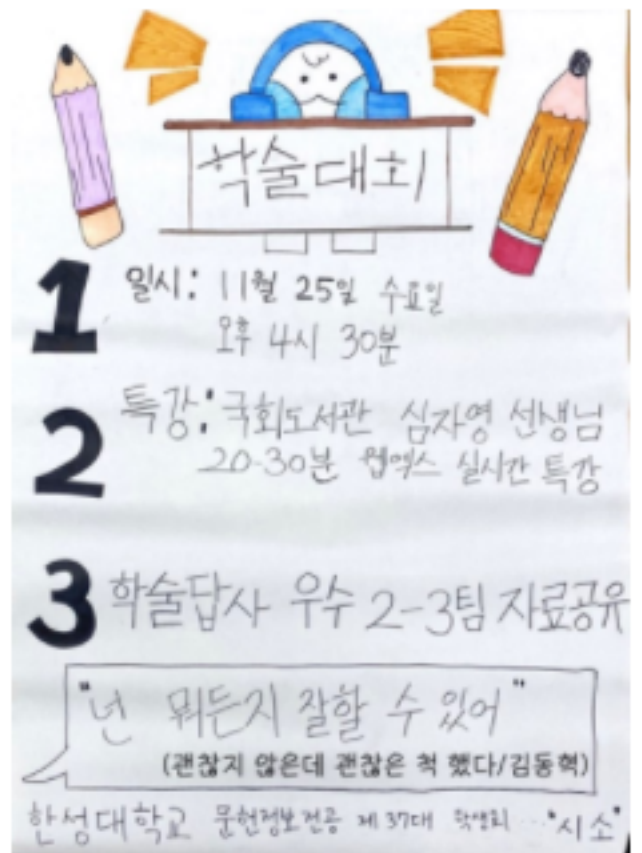 학술대회
1 일시: 11월 25일 수요일
오후 4시 30분
2 특강: 국회도서관 심자영 선생님
20-30분 웹엑스 실시간 특강
3 학술답사 우수 2-3팀 자료공유
"넌 뭐든지 잘할 수 있어"
(괜찮지 않은데 괜찮은 척 했다/김동혁)
한성대학교 문헌정보전공 제 37대 학생회 ··· "시소"